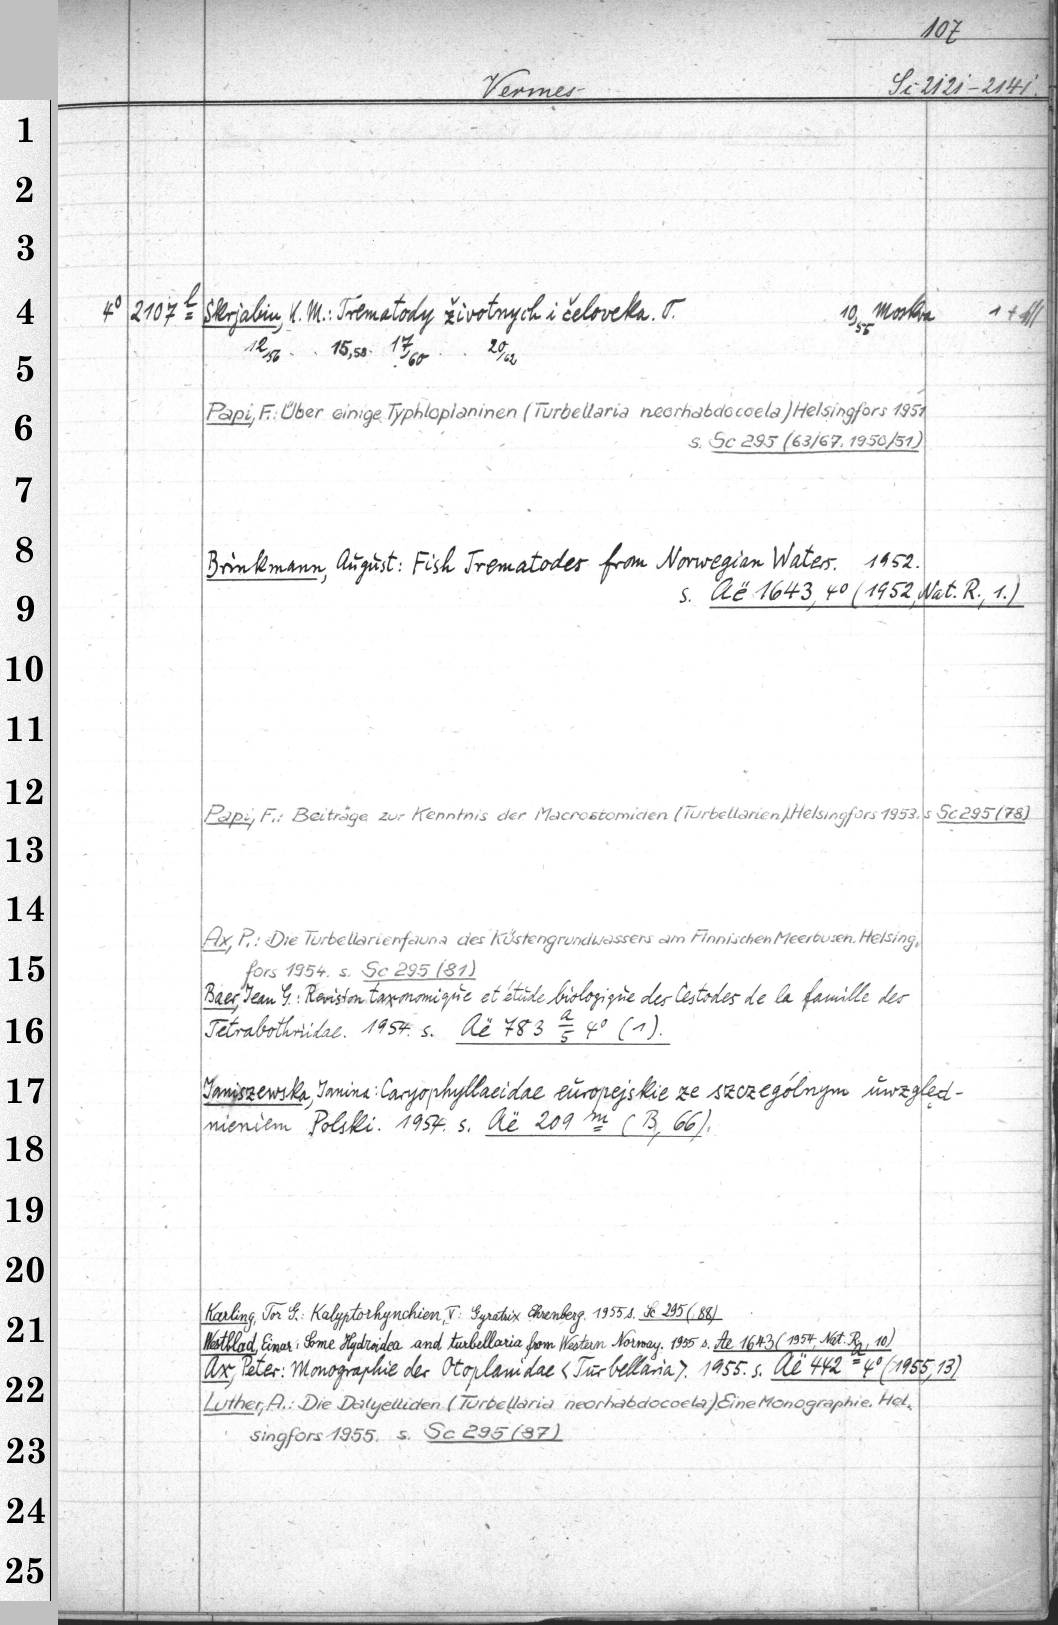 107
Vermes
Sc 2121-2141.
1
2
3
4
5
6
7
8
9
10
11
12
13
14
15
16
17
18
19
20
21
22
23
24
25
4° 2107 l Skrjabin, K. M.: Trematody životnych i čeloveka. T. 10,55 Moskva
12,56 15,58 17,60 20,62
Papi, F.: Über einige Typhloplaninen (Turbellaria neorhabdocoela) Helsingfors 1951
s. Sc 295 (63/67. 1950/51)
Brinkmann, August: Fish Trematodes from Norwegian Waters. 1952.
s. Aë 1643, 4° (1952, Nat. R., 1.)
Papi, F.: Beiträge zur Kenntnis der Macrostomiden (Turbellarien). Helsingfors 1953. s Sc 295 (78)
Ax, P.: Die Turbellarienfauna des Küstengrundwassers am Finnischen Meerbusen. Helsing-
fors 1954. s. Sc 295 (81)
Baer, Jean G.: Revision taxonomique et étude biologique des Cestodes de la famille des
Tetrabothriidae. 1954. s. Aë 783 a/5 4° (1).
Janiszewska, Janina: Caryophyllaeidae europejskie ze szczególnym uwzględ-
nieniem Polski. 1954. s. Aë 209 m (B, 66).
Karling, Tor G.: Kalyptorhynchien, V: Gyratrix Ehrenberg. 1955 s. Sc 295 (88)
Westblad, Einar: Some Hydroidea and turbellaria from Western Norway. 1955 s. Ae 1643 (1954, Nat. R, 10)
Ax, Peter: Monographie der Otoplanidae <Turbellaria>. 1955. s. Aë 442 a 4° (1955, 13)
Luther, A.: Die Dalyelliden (Turbellaria neorhabdocoela) Eine Monographie. Hel-
singfors 1955. s. Sc 295 (87)